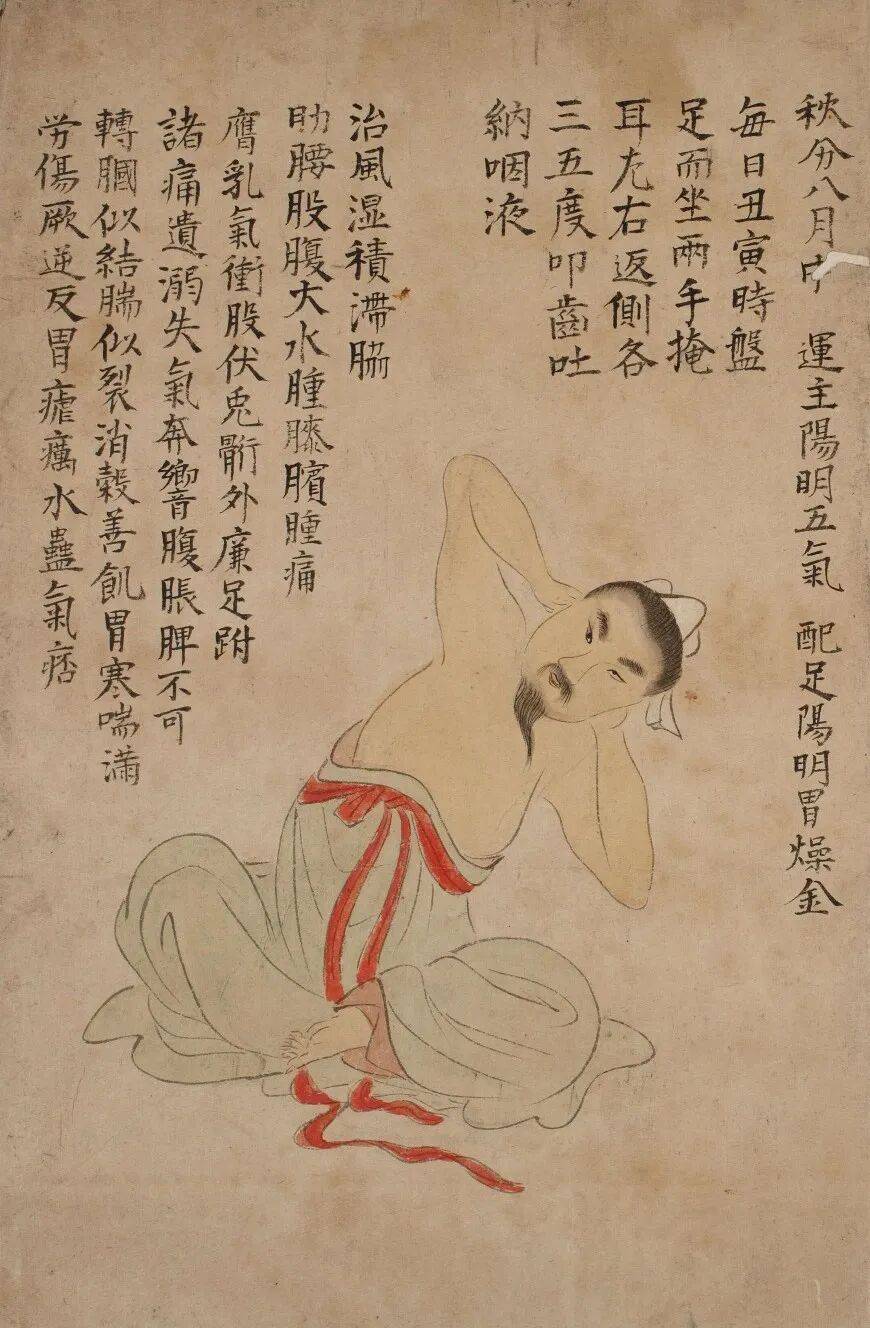 秋分八月中　運主陽明五氣　配足陽明胃燥金
每日丑寅時盤
足而坐兩手掩
耳左右返側各
三五度叩齒吐
納咽液
治風湿積滯脇
肋腰股腹大水腫膝臏腫痛
膺乳氣衝股伏兎骱外廉足跗
諸痛遺溺失氣奔響腹脹脾不可
轉膕似結腨似裂消穀善飢胃寒喘滿
労傷厥逆反胃瘧癘水蠱氣痞